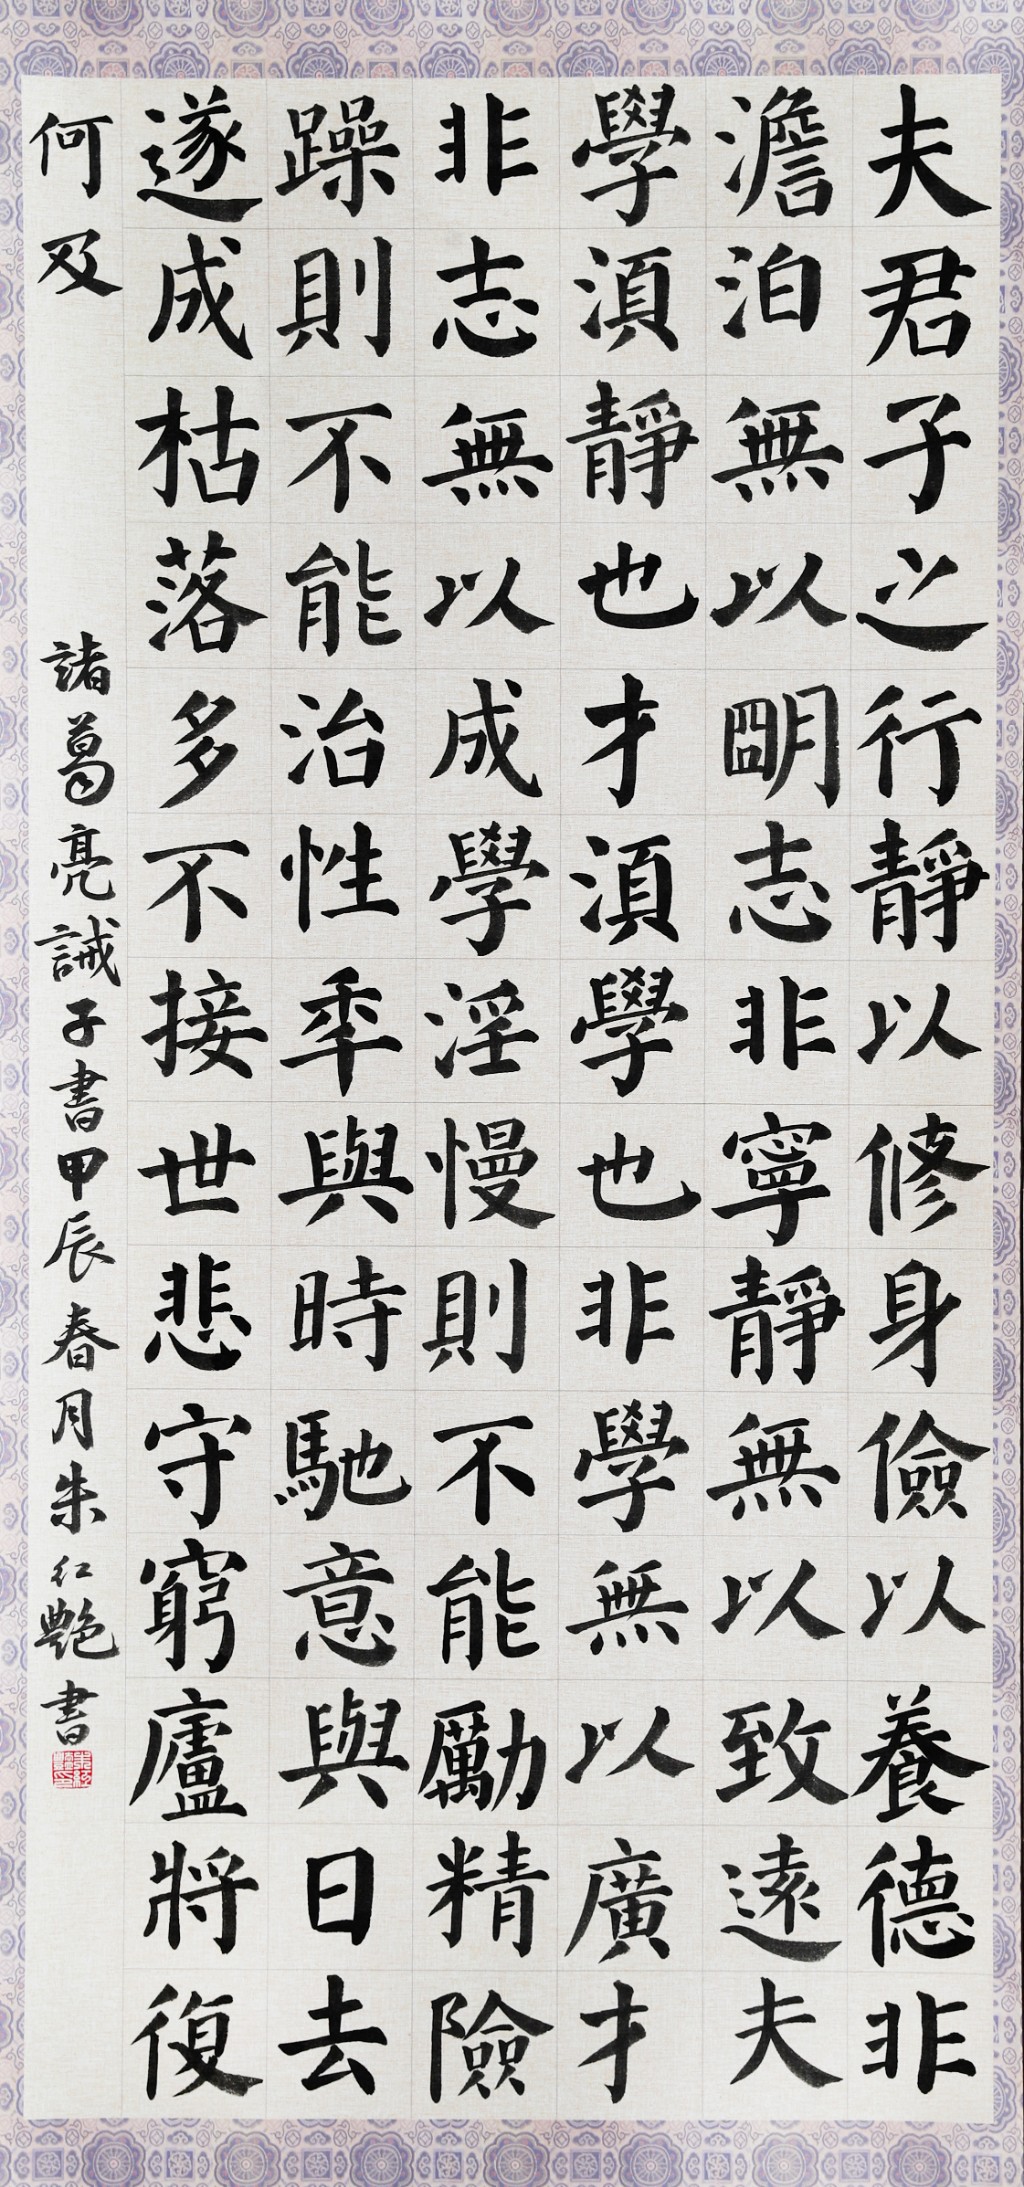 夫君子之行靜以修身儉以養德非
澹泊無以朙志非寧靜無以致遠夫
學須靜也才須學也非學無以廣才
非志無以成學淫慢則不能勵精險
躁則不能治性年與時馳意與日去
遂成枯落多不接世悲守窮廬將復
何及
諸葛亮誡子書甲辰春月朱紅艷書